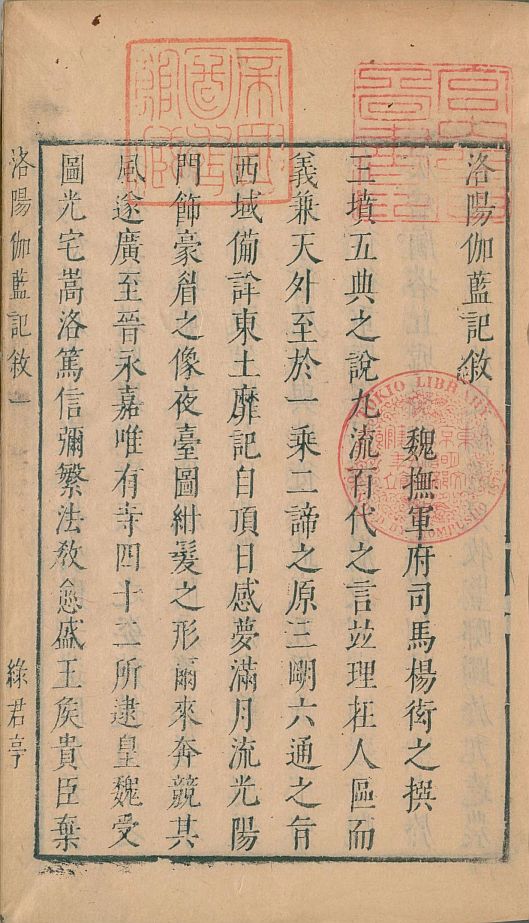 洛陽伽藍記敘
魏撫軍府司馬楊衒之撰
三墳五典之說九流百代之言竝理在人區而
義兼天外至於一乘二諦之原三明六通之旨
西域備詳東土靡記自頂日感夢滿月流光陽
門飾豪眉之像夜臺圖紺髮之形爾來奔競其
風遂廣至晉永嘉唯有寺四十二所逮皇魏受
圖光宅嵩洛篤信彌繁法敎愈盛王矦貴臣棄
洛陽伽藍記敘 一
綠君亭
TOKIO LIBRARY